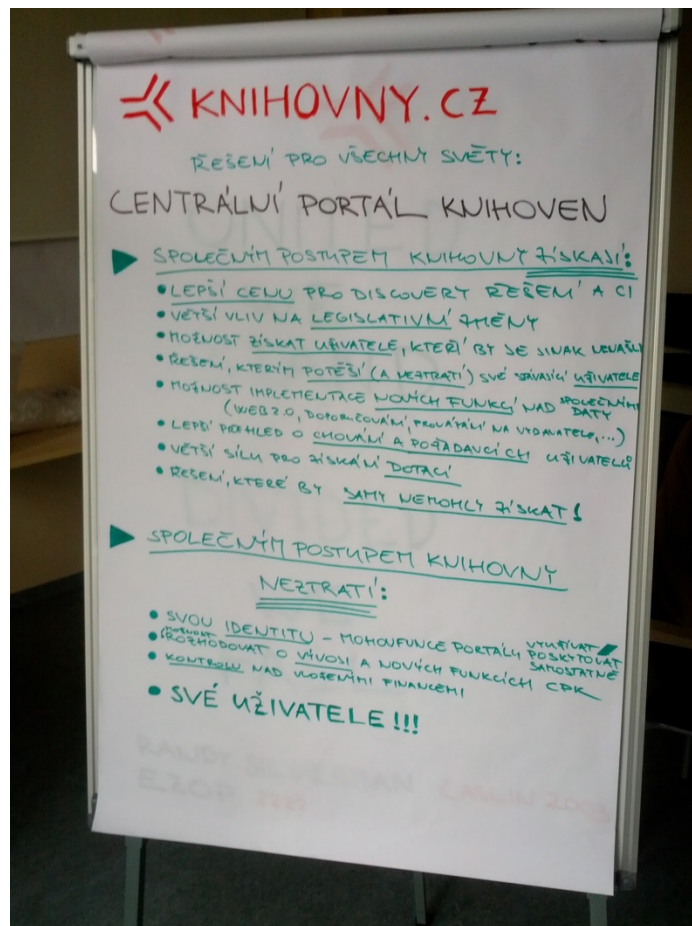 KNIHOVNY.CZ
ŘEŠENÍ PRO VŠECHNY SVĚTY:
CENTRÁLNÍ PORTÁL KNIHOVEN
► SPOLEČNÝM POSTUPEM KNIHOVNY ZÍSKAJÍ:
• LEPŠÍ CENU PRO DISCOVERY ŘEŠENÍ A CI
• VĚTŠÍ VLIV NA LEGISLATIVNÍ ZMĚNY
• MOŽNOST ZÍSKAT UŽIVATELE, KTEŘÍ BY SE JINAK NENAŠLI
• ŘEŠENÍ, KTERÝM POTĚŠÍ (A NEZTRATÍ) SVÉ STÁVAJÍCÍ UŽIVATELE
• MOŽNOST IMPLEMENTACE NOVÝCH FUNKCÍ NAD SPOLEČNÝMI DATY
(WEB 2.0, DOPORUČOVÁNÍ, PROVÁZÁNÍ NA VYDAVATELE,...)
• LEPŠÍ PŘEHLED O CHOVÁNÍ A POŽADAVCÍCH UŽIVATELŮ
• VĚTŠÍ SÍLU PRO ZÍSKÁNÍ DOTACÍ
• ŘEŠENÍ, KTERÉ BY SAMY NEMOHLY ZÍSKAT!
► SPOLEČNÝM POSTUPEM KNIHOVNY
NEZTRATÍ:
• SVOU IDENTITU - MOHOU FUNCE PORTÁLU VYUŽÍVAT / POSKYTOVAT SAMOSTATNĚ
• MOŽNOST ROZHODOVAT O VÝVOJI A NOVÝCH FUNKCÍCH CPK
• KONTROLU NAD VLOŽENÝMI FINANCEMI
• SVÉ UŽIVATELE!!!
UNITED
DIVIDED
RANDY SILVERMAN CASLIN 2003
EZOP